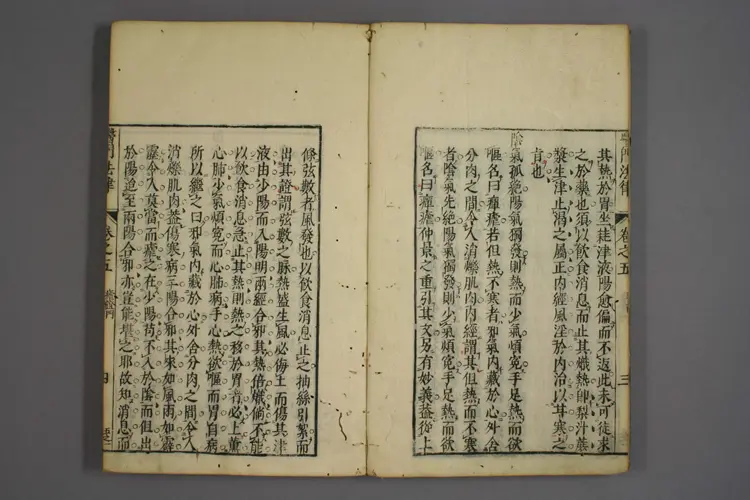 其熱於胃坐耗津液陽愈偏而不返此未可徒求
之於藥也須以飲食消息而止其熾熱即梨汁蔗
漿生津止渴之屬正內經風淫於內治以甘寒之
旨也
陰氣孤絕陽氣獨發則熱而少氣煩寃手足熱而欲
嘔名曰癉瘧若但熱不寒者邪氣內藏於心外舍
分肉之間令人消爍肌肉內經謂其但熱而不寒
者陰氣先絕陽氣獨發則少氣煩寃手足熱而欲
嘔名曰癉瘧仲景之重引其文另有妙義蓋從上
醫門法律
卷之五
三
條弦數者風發也以飲食消息止之抽絲引絮而
出其證謂弦數之脉熱盛生風必傷土而傷其津
液由少陽而入陽明兩經合邪其熱倍熾倘不能
以飲食消息急止其熱則熱之移於胃者必上薰
心肺少氣煩寃而心肺病手心熱欲嘔而胃自病
所以繼之曰邪氣內藏於心外合分肉之間令人
消爍肌肉蓋傷寒病三陽合邪其來如風雨如霹
靂令人莫當而瘧之在少陽苟不入於陰而但出
於陽迨至兩陽合邪亦豈能堪之耶故知消息而
醫門法律
卷之五
瘧證門
四